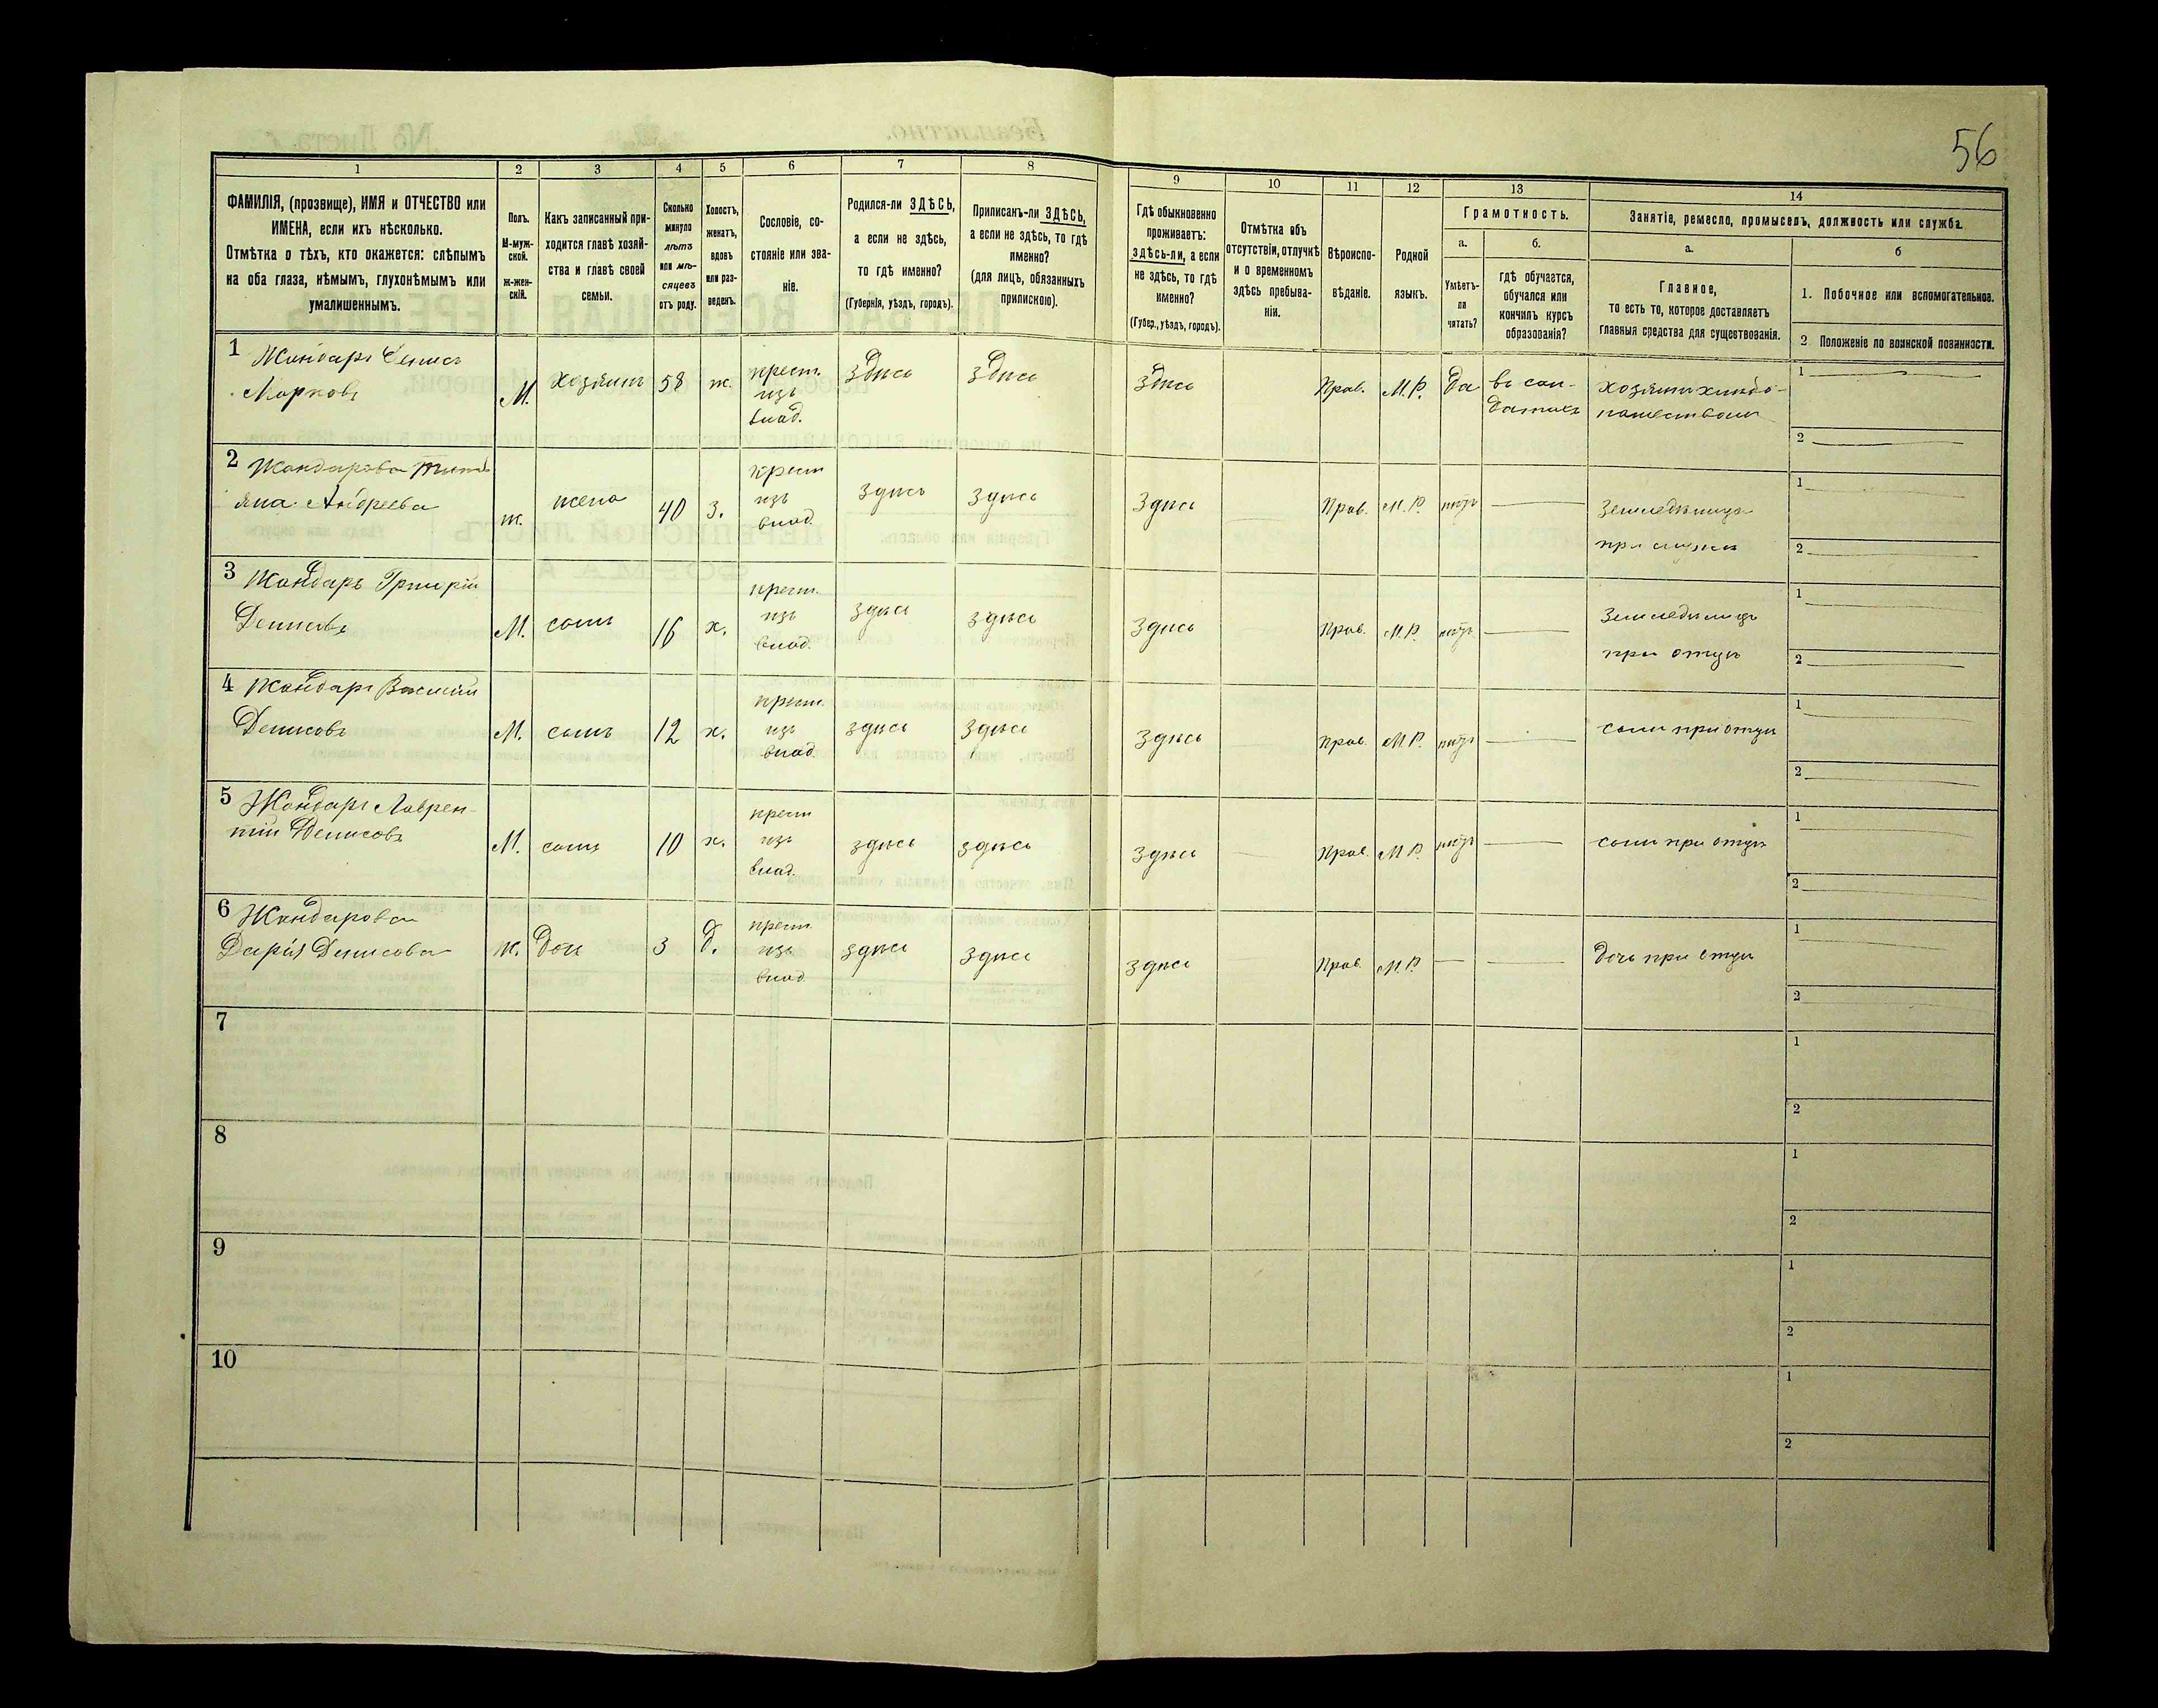 56
1 2 3 4 5 6 7 8 9 10 11 12 13 14
ФАМИЛІЯ, (прозвище), ИМЯ и ОТЧЕСТВО или
ИМЕНА, если ихъ нѣсколько.
Отмѣтка о тѣхъ, кто окажется: слѣпымъ
на оба глаза, нѣмымъ, глухонѣмымъ или
умалишеннымъ.
Полъ.
М-муж-
ской.
ж-жен-
скій.
Какъ записанный при-
ходится главѣ хозяй-
ства и главѣ своей
семьи.
Сколько
минуло
лѣтъ
или мѣ-
сяцевъ
отъ роду.
Холостъ,
женатъ,
вдовъ
или раз-
веденъ.
Сословіе, со-
стояніе или зва-
ніе.
Родился-ли ЗДѢСЬ,
а если не здѣсь,
то гдѣ именно?
(Губернія, уѣздъ, городъ).
Приписанъ-ли ЗДѢСЬ,
а если не здѣсь, то гдѣ
именно?
(для лицъ, обязанныхъ
припискою).
Гдѣ обыкновенно
проживаетъ:
здѣсь-ли, а если
не здѣсь, то гдѣ
именно?
(Губер., уѣздъ, городъ).
Отмѣтка объ
отсутствіи, отлучкѣ
и о временномъ
здѣсь пребыва-
ніи.
Вѣроиспо-
вѣданіе.
Родной
языкъ.
Грамотность.
а.
Умѣетъ-
ли
читать?
б.
гдѣ обучается,
обучался или
кончилъ курсъ
образованія?
Занятіе, ремесло, промыселъ, должность или служба.
а.
Главное,
то есть то, которое доставляетъ
главныя средства для существованія.
б
1. Побочное или вспомогательное.
2 Положеніе по воинской повинности.
1 Жандаръ Денисъ
Марковъ
М. хозяинъ 58 ж.
крест.
изъ
влад.
здѣсь здѣсь здѣсь Прав. М.Р. да
въ сол-
датахъ
хозяинъ хлѣбо-
пашествомъ
1
2
2 Жандарова Татьяна Андреева
ж. жена 40 з.
крест
изъ
влад.
здѣсь здѣсь здѣсь Прав. М.Р. нѣтъ
земледѣлица
при мужѣ
1
2
3 Жандаръ Григорій
Денисовъ
М. сынъ 16 х.
крест.
изъ
влад.
здѣсь здѣсь здѣсь Прав. М.Р. нѣтъ
земледѣлецъ
при отцѣ
1
2
4 Жандаръ Василій
Денисовъ
М. сынъ 12 х.
крест.
изъ
влад.
здѣсь здѣсь здѣсь Прав. М.Р. нѣтъ
сынъ при отцѣ
1
2
5 Жандаръ Лаврен-
тій Денисовъ
М. сынъ 10 х.
крест
изъ
влад.
здѣсь здѣсь здѣсь Прав. М.Р. нѣтъ
сынъ при отцѣ
1
2
6 Жандарова
Дарія Денисова
ж. дочь 3 д.
крест.
изъ
влад
здѣсь здѣсь здѣсь Прав. М.Р.
дочь при отцѣ
1
2
7
1
2
8
1
2
9
1
2
10
1
2